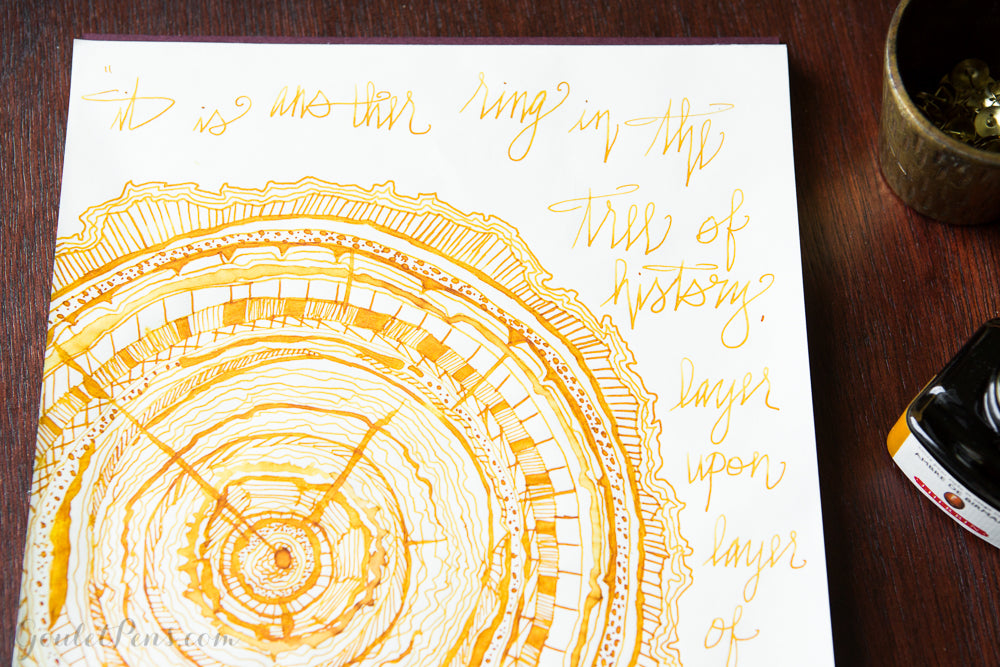 "it is another ring in the
tree of
history.
layer
upon
layer
of
AMBRE DE BIRMANIE
GouletPens.com